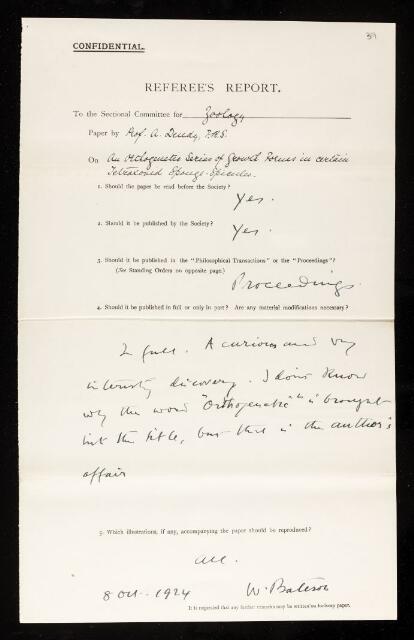 39
CONFIDENTIAL.
REFEREE'S REPORT.
To the Sectional Committee for Zoology
Paper by Prof. A. Dendy, F.R.S.
On An Orthogenetic Series of Growth Forms in certain
Tetraxonid Sponge-Spicules.
1. Should the paper be read before the Society?
Yes.
2. Should it be published by the Society?
Yes.
3. Should it be published in the "Philosophical Transactions" or the "Proceedings"?
(See Standing Orders on opposite page.)
Proceedings.
4. Should it be published in full or only in part? Are any material modifications necessary?
In full. A curious and very
interesting discovery. I don't know
why the word "Orthogenetic" is brought
into the title, but that is the author's
affair
5. Which illustrations, if any, accompanying the paper should be reproduced?
All.
8 Oct. 1924 W. Bateson
It is requested that any further remarks may be written on foolscap paper.